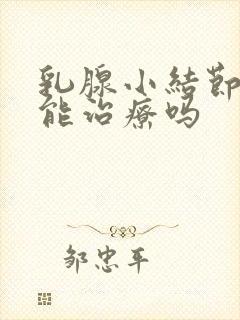 乳腺小結節
能治療吗
邹忠平